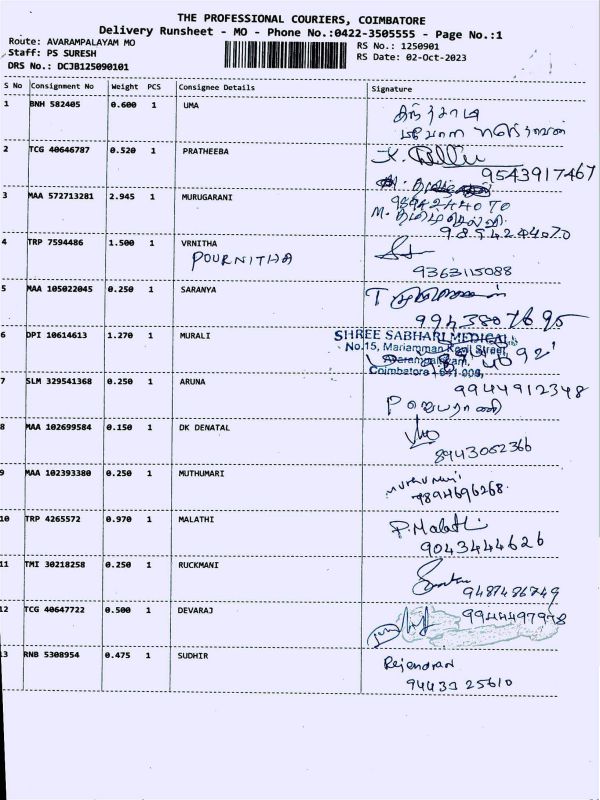 THE PROFESSIONAL COURIERS, COIMBATORE
Delivery Runsheet - MO - Phone No.:0422-3505555 - Page No.:1
Route: AVARAMPALAYAM MO
RS No.: 1250901
Staff: PS SURESH
RS Date: 02-Oct-2023
DRS No.: DCJB125090101
S No Consignment No Weight PCS Consignee Details Signature
1 BNH 582405 0.600 1 UMA
2 TCG 40646787 0.520 1 PRATHEEBA
9543917467
3 MAA 572713281 2.945 1 MURUGARANI
9894244070
M.
9894244070
4 TRP 7594486 1.500 1 VRNITHA
POURNITHA
9363115088
5 MAA 105022045 0.250 1 SARANYA
9943807695
6 DPI 10614613 1.270 1 MURALI
SHREE SABHARI MEDICAL
No.15, Mariamman Kovil Street,
Avarampalayam,
Coimbatore - 641 006,
7 SLM 329541368 0.250 1 ARUNA
9944912348
8 MAA 102699584 0.150 1 DK DENATAL
8943052366
9 MAA 102393380 0.250 1 MUTHUMARI
9894696268
10 TRP 4265572 0.970 1 MALATHI
P. Malathi
9043444626
11 TMI 30218258 0.250 1 RUCKMANI
9487486749
12 TCG 40647722 0.500 1 DEVARAJ
9944497978
13 RNB 5308954 0.475 1 SUDHIR
Rajendran
94433 25610